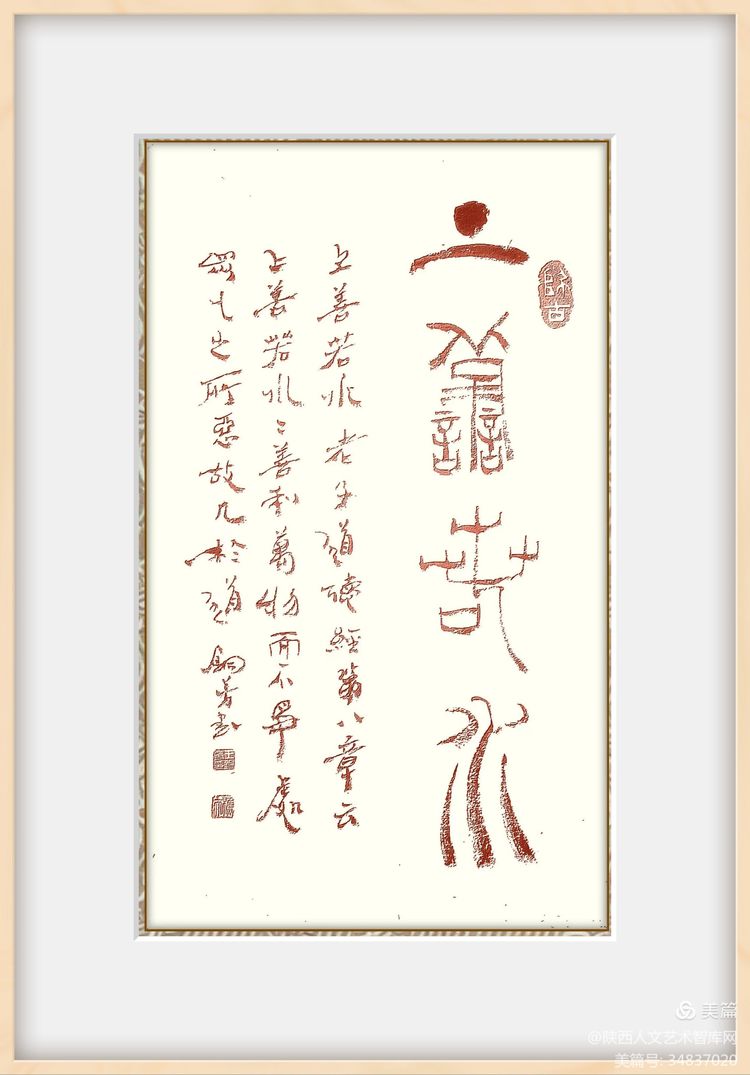 上善若水
上善若水老子道德經第八章云
上善若水〻善利萬物而不爭處
眾人之所惡故几於道
美篇
@陕西人文艺术智库网
美篇号: 34837020